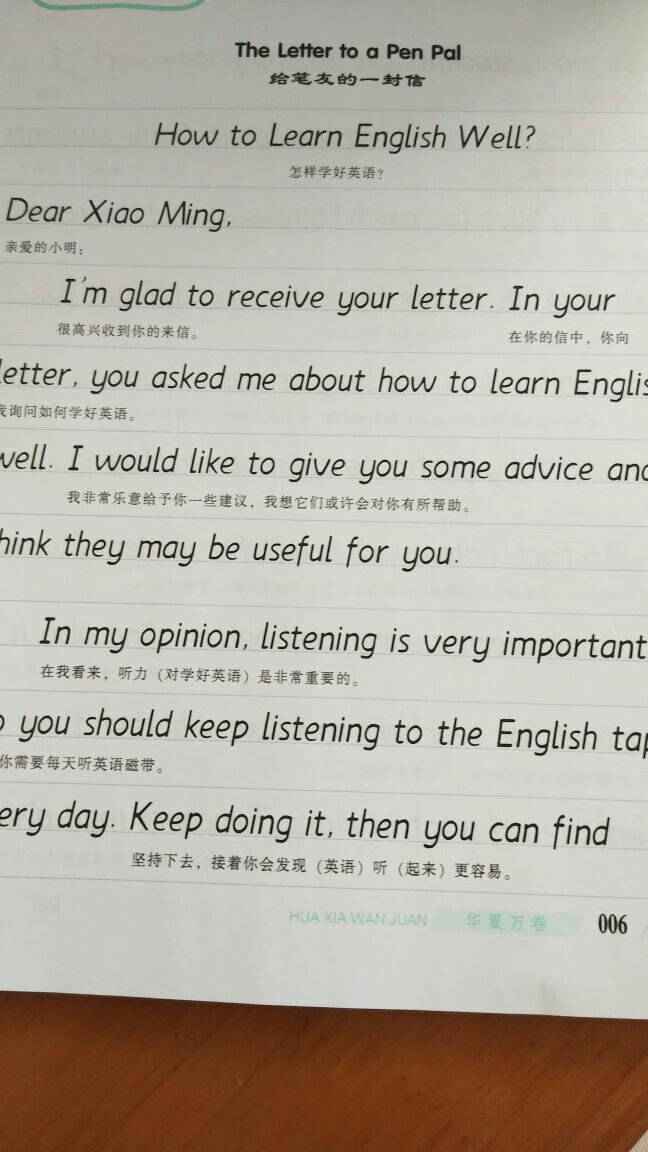 The Letter to a Pen Pal
给笔友的一封信
How to Learn English Well?
怎样学好英语?
Dear Xiao Ming,
亲爱的小明:
I'm glad to receive your letter. In your
很高兴收到你的来信。 在你的信中,你向
letter, you asked me about how to learn Englis
我询问如何学好英语。
well. I would like to give you some advice and
我非常乐意给予你一些建议,我想它们或许会对你有所帮助。
hink they may be useful for you.
In my opinion, listening is very important
在我看来,听力(对学好英语)是非常重要的。
o you should keep listening to the English tap
你需要每天听英语磁带。
ery day. Keep doing it, then you can find
坚持下去,接着你会发现(英语)听(起来)更容易。
HUA XIA WAN JUAN 华夏万卷 006